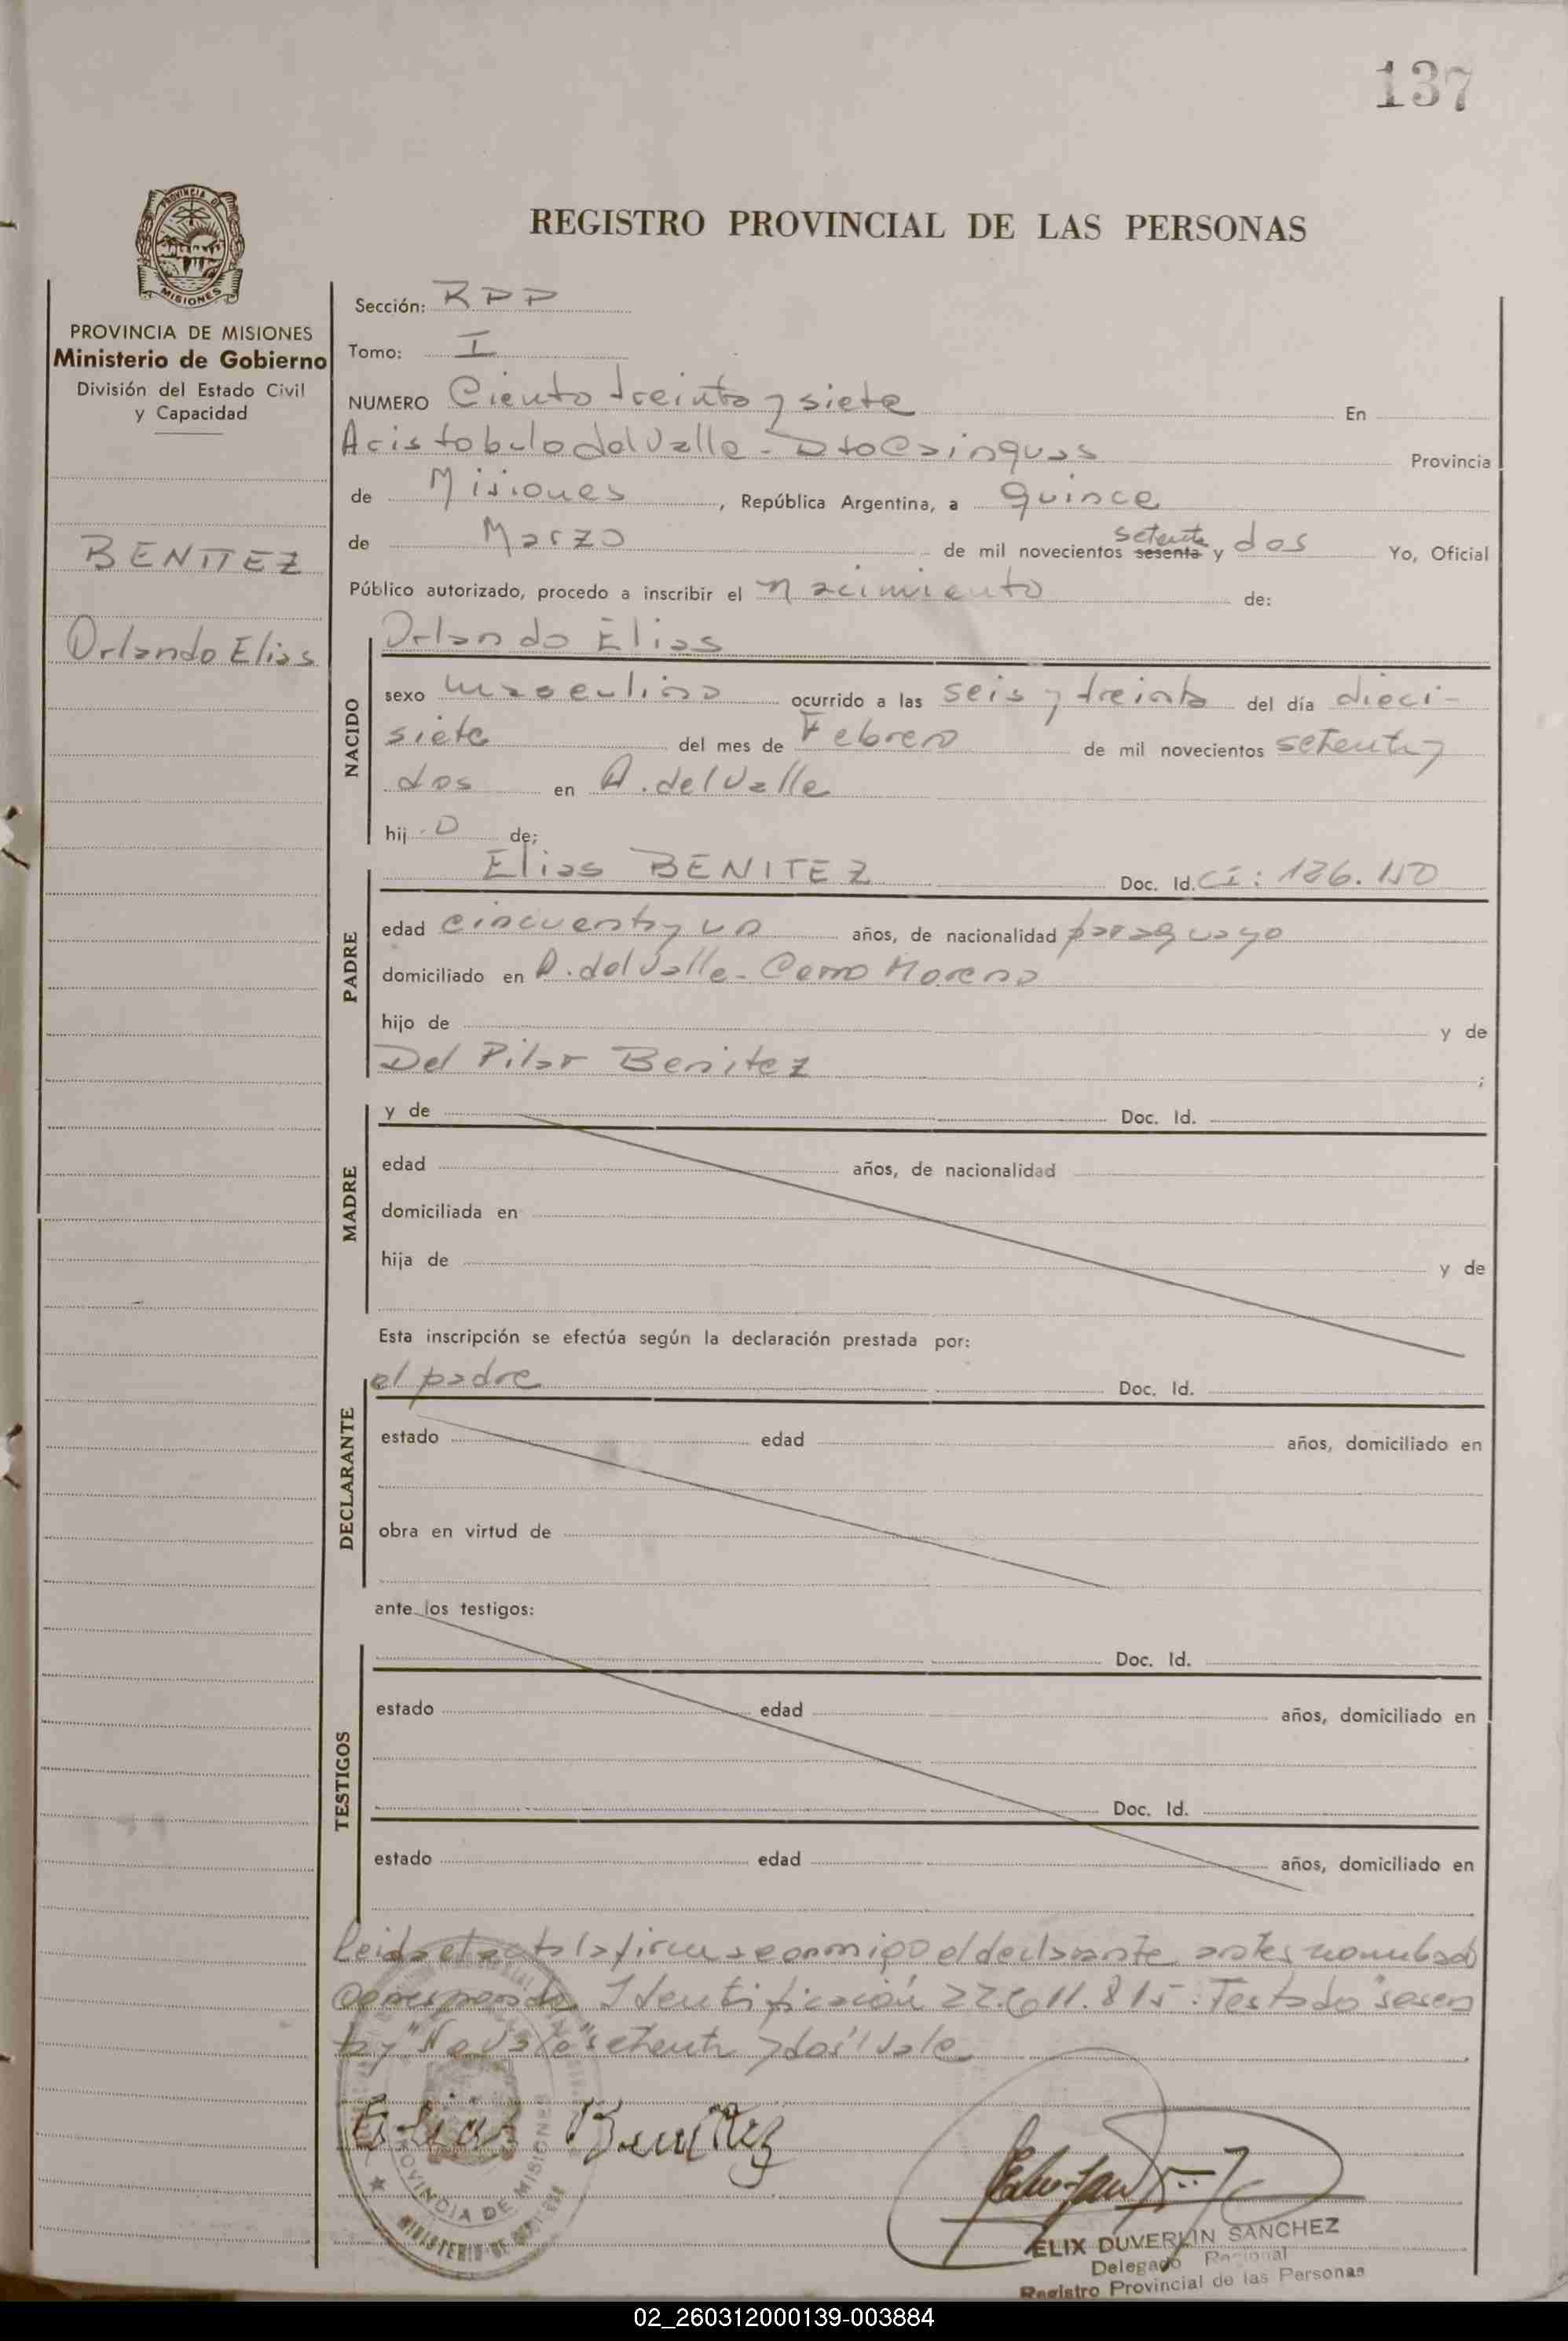 137
REGISTRO PROVINCIAL DE LAS PERSONAS
PROVINCIA DE MISIONES
PROVINCIA DE MISIONES
Ministerio de Gobierno
División del Estado Civil
y Capacidad
BENITEZ
Orlando Elias
Sección: RPP
Tomo: I
NUMERO Ciento treinta y siete En
Aristobulo del Valle - Dto Cainguas Provincia
de Misiones, República Argentina, a quince
de Marzo de mil novecientos sesenta setenta y dos Yo, Oficial
Público autorizado, procedo a inscribir el nacimiento de:
NACIDO
Orlando Elias
sexo masculino ocurrido a las seis y treinta del día dieci-
siete del mes de Febrero de mil novecientos setenta y
dos en A. del Valle
hij o de;
PADRE
Elias BENITEZ Doc. Id. CI: 126.150
edad cincuenta y un años, de nacionalidad paraguayo
domiciliado en A. del Valle - Cerro Moreno
hijo de y de
Del Pilar Benitez ;
MADRE
y de Doc. Id.
edad años, de nacionalidad
domiciliada en
hija de y de
Esta inscripción se efectúa según la declaración prestada por:
DECLARANTE
el padre Doc. Id.
estado edad años, domiciliado en
obra en virtud de
ante los testigos:
TESTIGOS
Doc. Id.
estado edad años, domiciliado en
Doc. Id.
estado edad años, domiciliado en
Leida el acta la firma conmigo el declarante antes nombrado
corresponde Identificación 22.611.815. Testado "sesen
ta y" No vale "setenta y dos" Vale
Elias Benitez
PROVINCIA DE MISIONES
MINISTERIO DE
ELIX DUVERLIN SANCHEZ
Delegado
Registro Provincial de las Personas
02_260312000139-003884